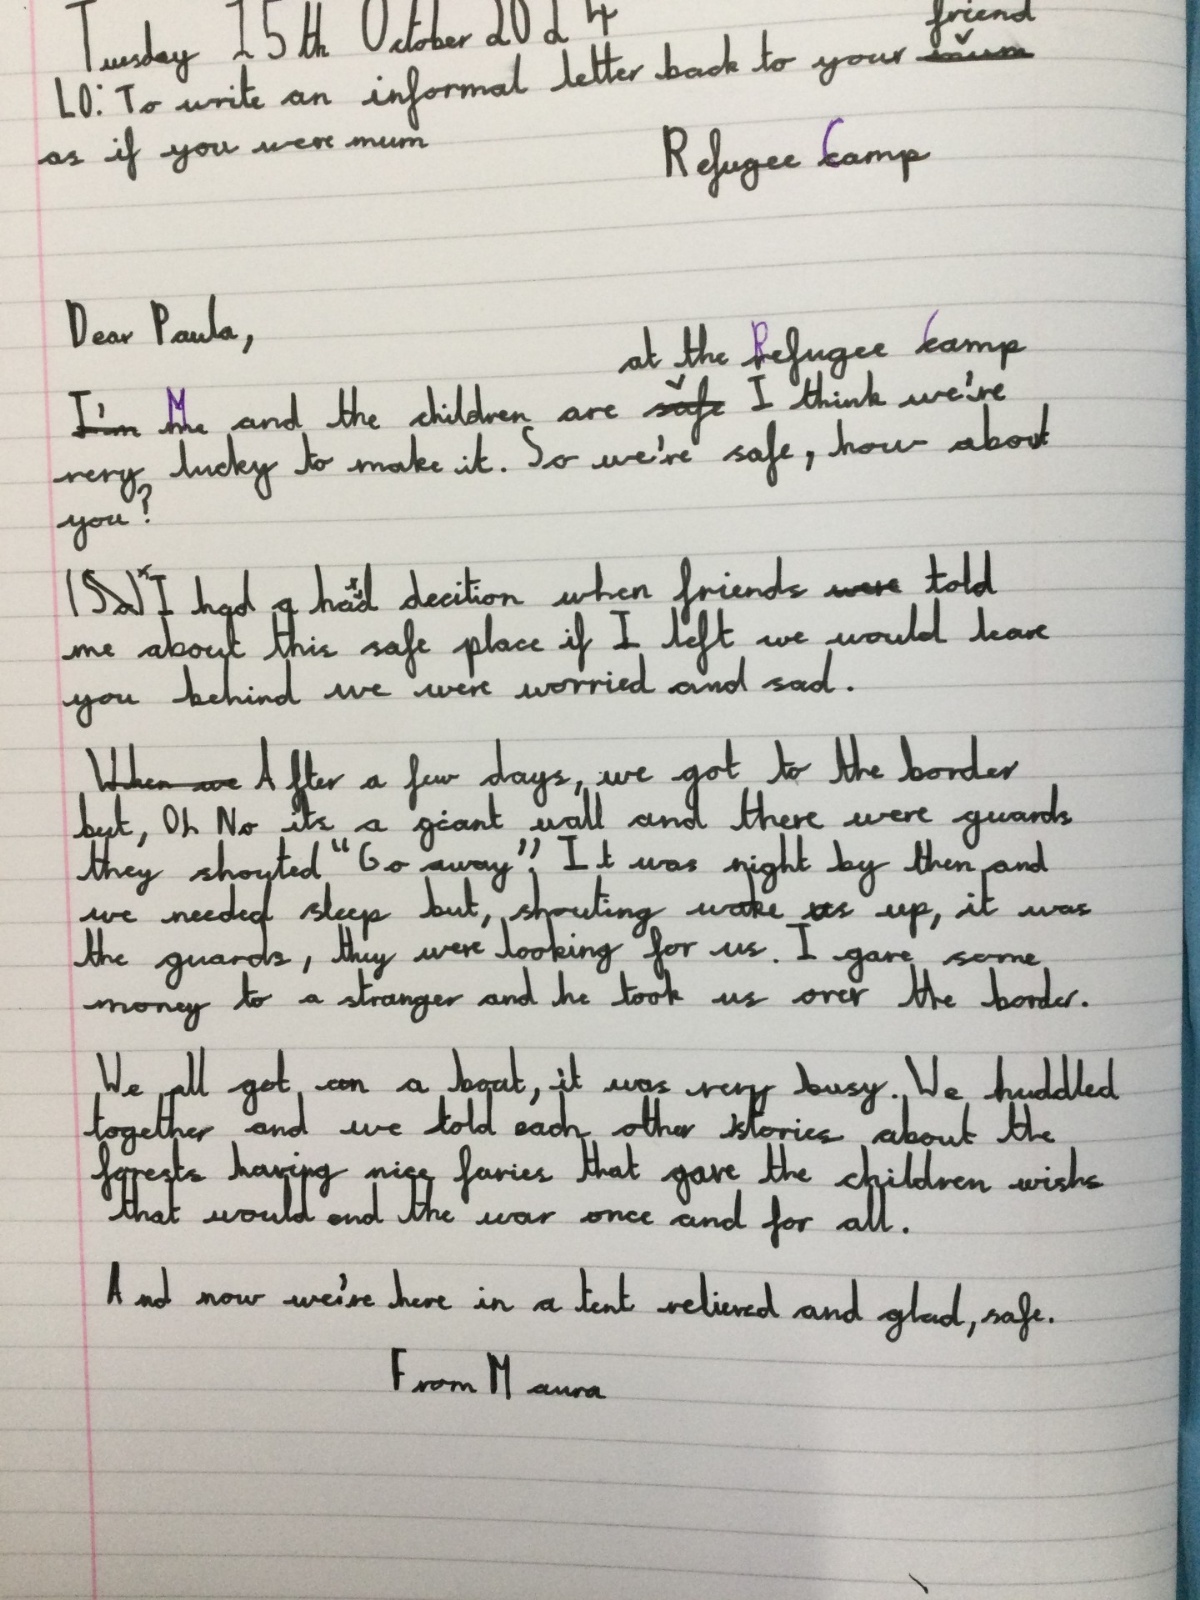 Tuesday 15th October 2024
friend
LO: To write an informal letter back to your mum
as if you were mum
Refugee Camp
Dear Paula,
at the Refugee Camp
I'm Me and the children are safe I think we're
very lucky to make it. So we're safe, how about
you?
I had a had decition when friends were told
me about this safe place if I left we would leave
you behind we were worried and sad.
When we After a few days, we got to the border
but, Oh No its a giant wall and there were guards
they shouted "Go away"! It was night by then and
we needed sleep but, shouting woke us up, it was
the guards, they were looking for us. I gave some
money to a stranger and he took us over the border.
We all got on a boat, it was very busy. We huddled
together and we told each other stories about the
forests having nice faries that gave the children wishs
that would end the war once and for all.
And now we're here in a tent relieved and glad, safe.
From Maura